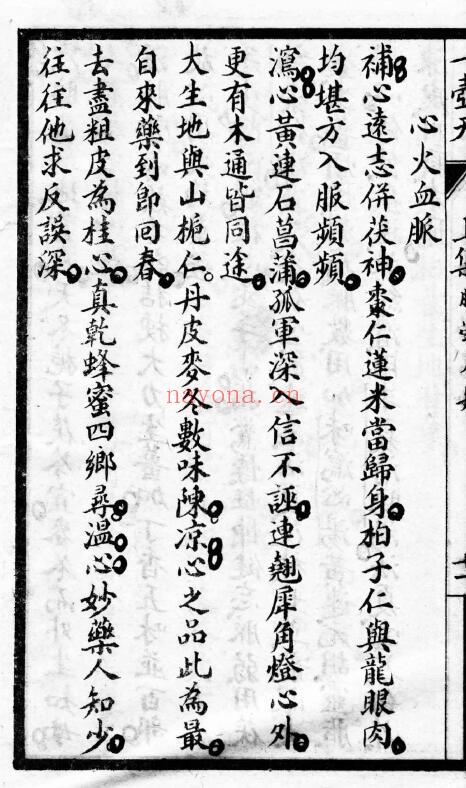 一壺天
心火血脈
補心遠志併茯神棗仁蓮米當歸身柏子仁與龍眼肉
均堪方入服頻頻
瀉心黃連石菖蒲孤軍深入信不誣連翹犀角燈心外
更有木通皆同途
大生地與山梔仁丹皮麥冬數味陳凉心之品此為最
自來藥到即回春
去盡粗皮為桂心真乾蜂蜜四鄉尋溫心妙藥人知少
往往他求反誤深
nayona.cn